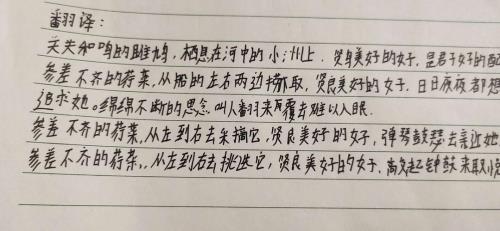 翻羽译：
关关和鸣的雎鸠，栖息在河中的小洲上．贤良美好的女子，是君子好的配
参差不齐的荇菜，从船的左右两边捞取，贤良美好的女子．日日夜夜都想
追求她。绵绵不断的思念，叫人翻来覆去难以入眠．
参差不齐的荇菜，从左到右去采摘它，贤良美好的女子，弹琴鼓瑟去亲近她
参差不齐的荇菜，从左到右去挑选它，贤良美好的女子．高起钟鼓来取悦